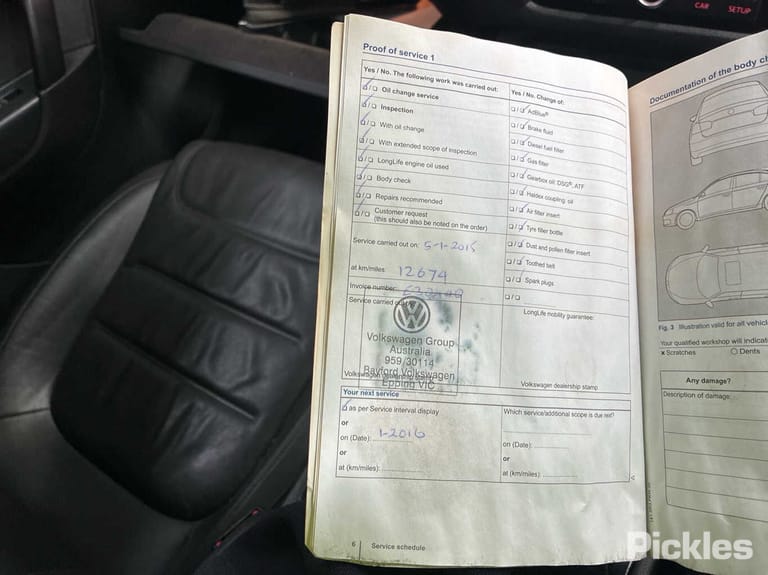 CAR SETUP
Proof of service 1
Yes / No. The following work was carried out:
☑/☐ Oil change service
☑/☐ Inspection
☑/☐ With oil change
☑/☐ With extended scope of inspection
☑/☐ LongLife engine oil used
☑/☐ Body check
☑/☐ Repairs recommended
☑/☐ Customer request
(this should also be noted on the order)
Service carried out on: 5-1-2015
at km/miles: 12674
Invoice number:
Service carried out
VW
Volkswagen Group
Australia
959/30114
Rayford Volkswagen
Epping VIC
Volkswagen dealership stamp
Yes / No. Change of:
☐/☑ AdBlue®
☐/☑ Brake fluid
☐/☑ Diesel fuel filter
☐/☑ Gas filter
☐/☑ Gearbox oil: DSG®, ATF
☐/☑ Haldex coupling oil
☐/☑ Air filter insert
☐/☑ Tyre filler bottle
☐/☑ Dust and pollen filter insert
☐/☑ Toothed belt
☐/☑ Spark plugs
☐/☐
LongLife mobility guarantee:
Volkswagen dealership stamp
Your next service
☑ as per Service interval display
or
on (Date): 1-2016
or
at (km/miles):
Which service/additional scope is due next?
on (Date):
or
at (km/miles):
6 Service schedule
Documentation of the body ch
Fig. 3 Illustration valid for all vehicl
Your qualified workshop will indicat
x Scratches ○ Dents
Any damage?
Description of damage:
Pickles